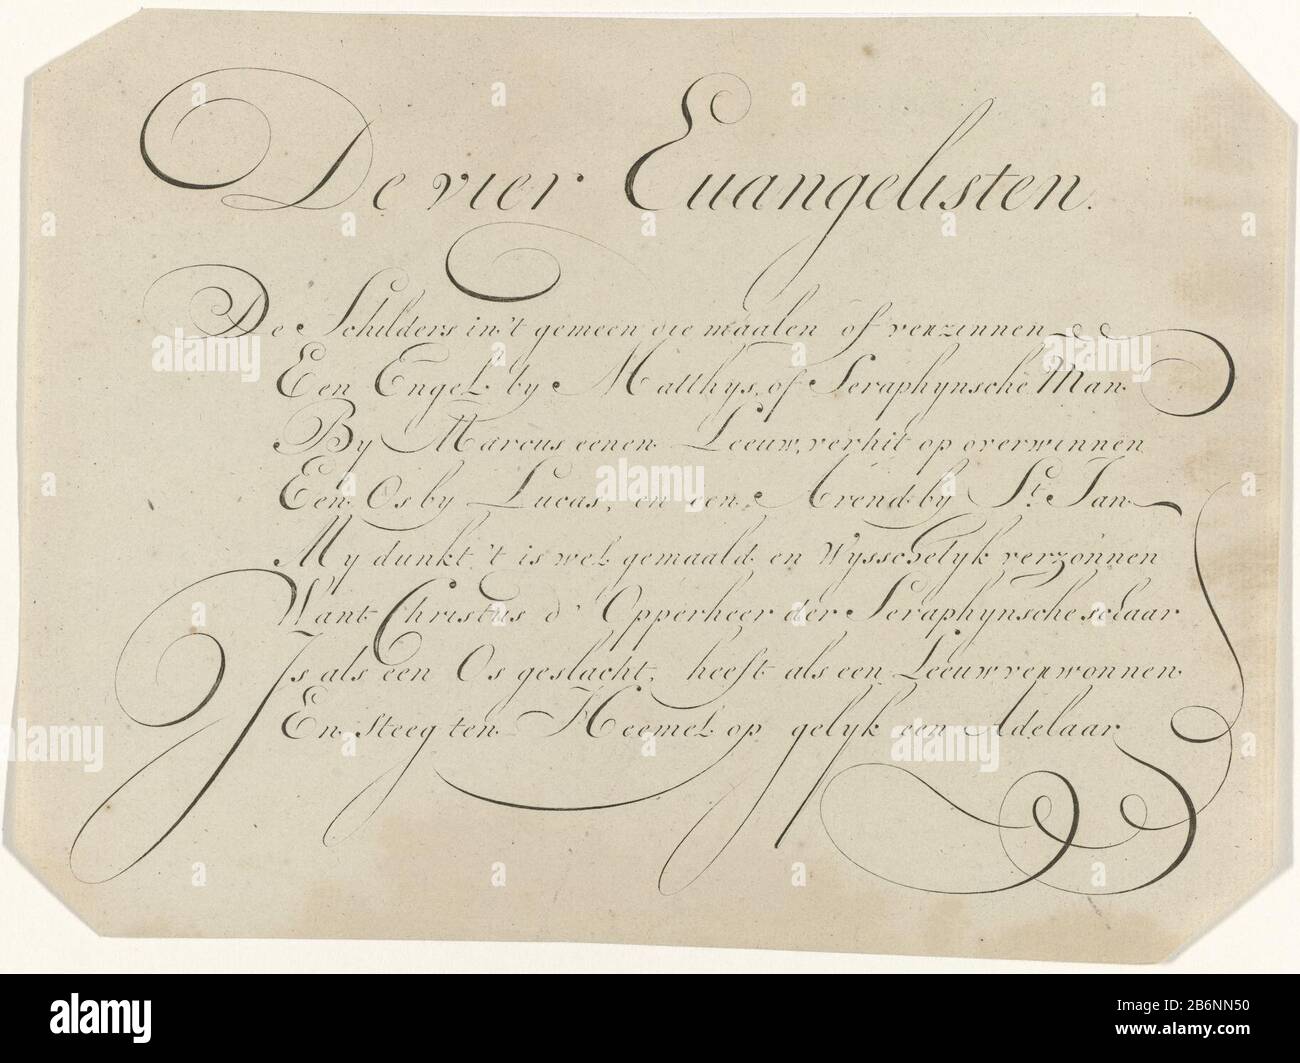 De vier Euangelisten.
De Schilders in't gemeen die maalen of verzinnen
Een Engel by Matthys, of Seraphynsche Man
By Marcus eenen Leeuw, verhit op overwinnen
Een Os by Lucas, en een Arend by St. Jan
My dunkt 't is wel gemaald en wysschelyk verzonnen
Want Christus d' Opperheer der Seraphynsche schaar
Is als een Os geslacht, heeft als een Leeuw verwonnen
En steeg ten Heemel op gelyk een Adelaar
alamy
Image ID: 2B6NN50
www.alamy.com